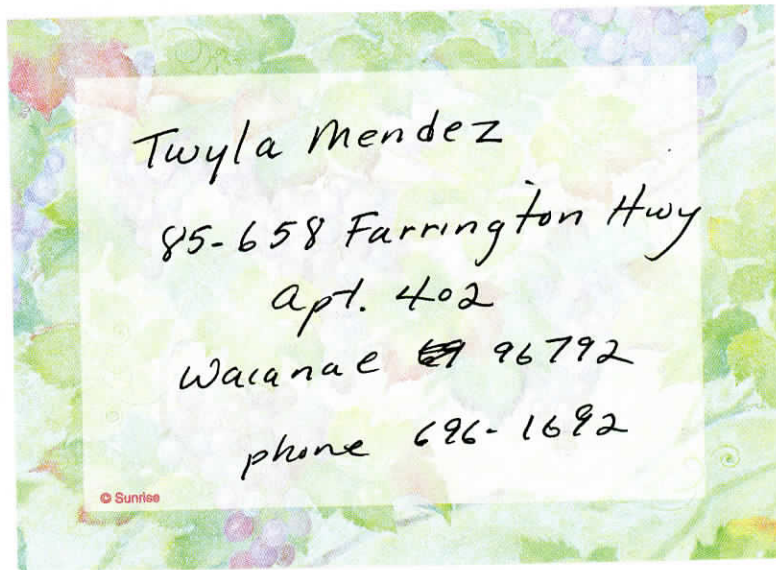 Twyla Mendez
85-658 Farrington Hwy
Apt. 402
Waianae 96792
phone 696-1692
© Sunrise